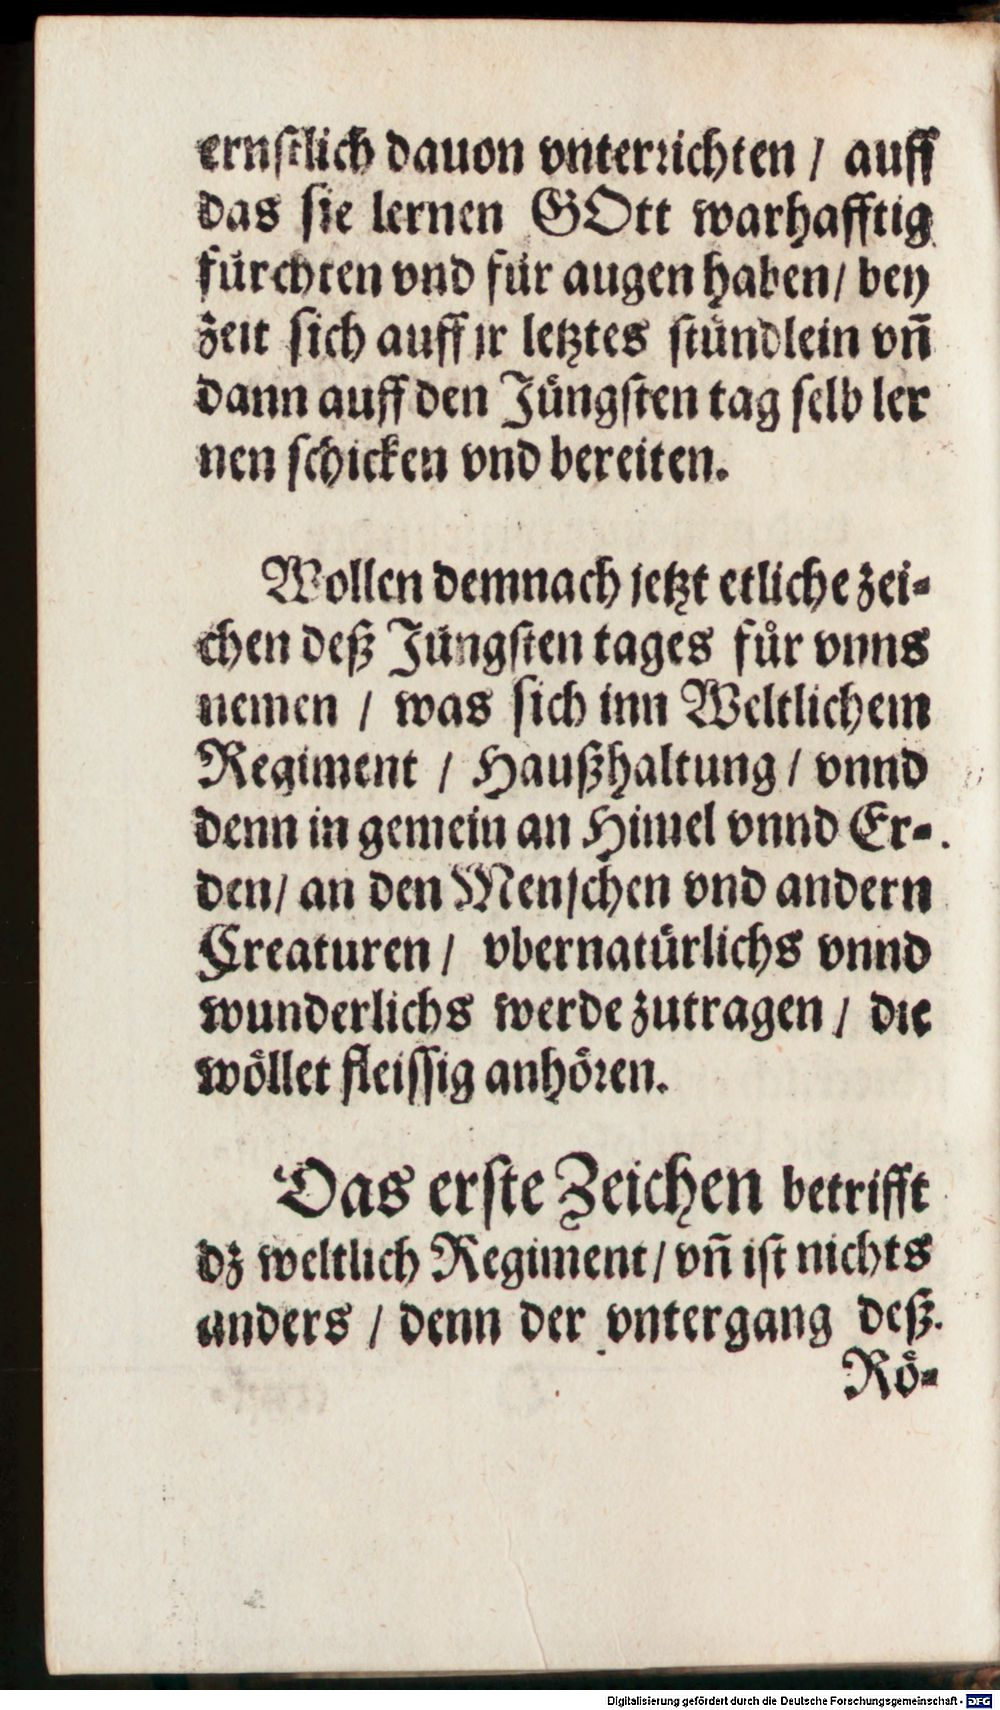 ernſtlich dauon vnterꝛichten / auff
das ſie lernen GOtt warhafftig
fürchten vnd für augen haben / bey
zeit ſich auff ir letztes ſtündlein vn̄
dann auff den Jüngſten tag ſelb ler
nen ſchicken vnd bereiten.
Wollen demnach jetzt etliche zei⸗
chen deß Jüngſten tages fuͤr vnns
nemen / was ſich inn Weltlichem
Regiment / Haußhaltung / vnnd
denn in gemein an Himel vnnd Er⸗
den / an den Menſchen vnd andern
Creaturen / vbernatürlichs vnnd
wunderlichs werde zutragen / die
woͤllet fleiſſig anhoͤꝛen.
Das erſte Zeichen betrifft
dz weltlich Regiment / vn̄ iſt nichts
anders / denn der vntergang deß
Roͤ⸗
Digitalisierung gefördert durch die Deutsche Forschungsgemeinschaft - DFG